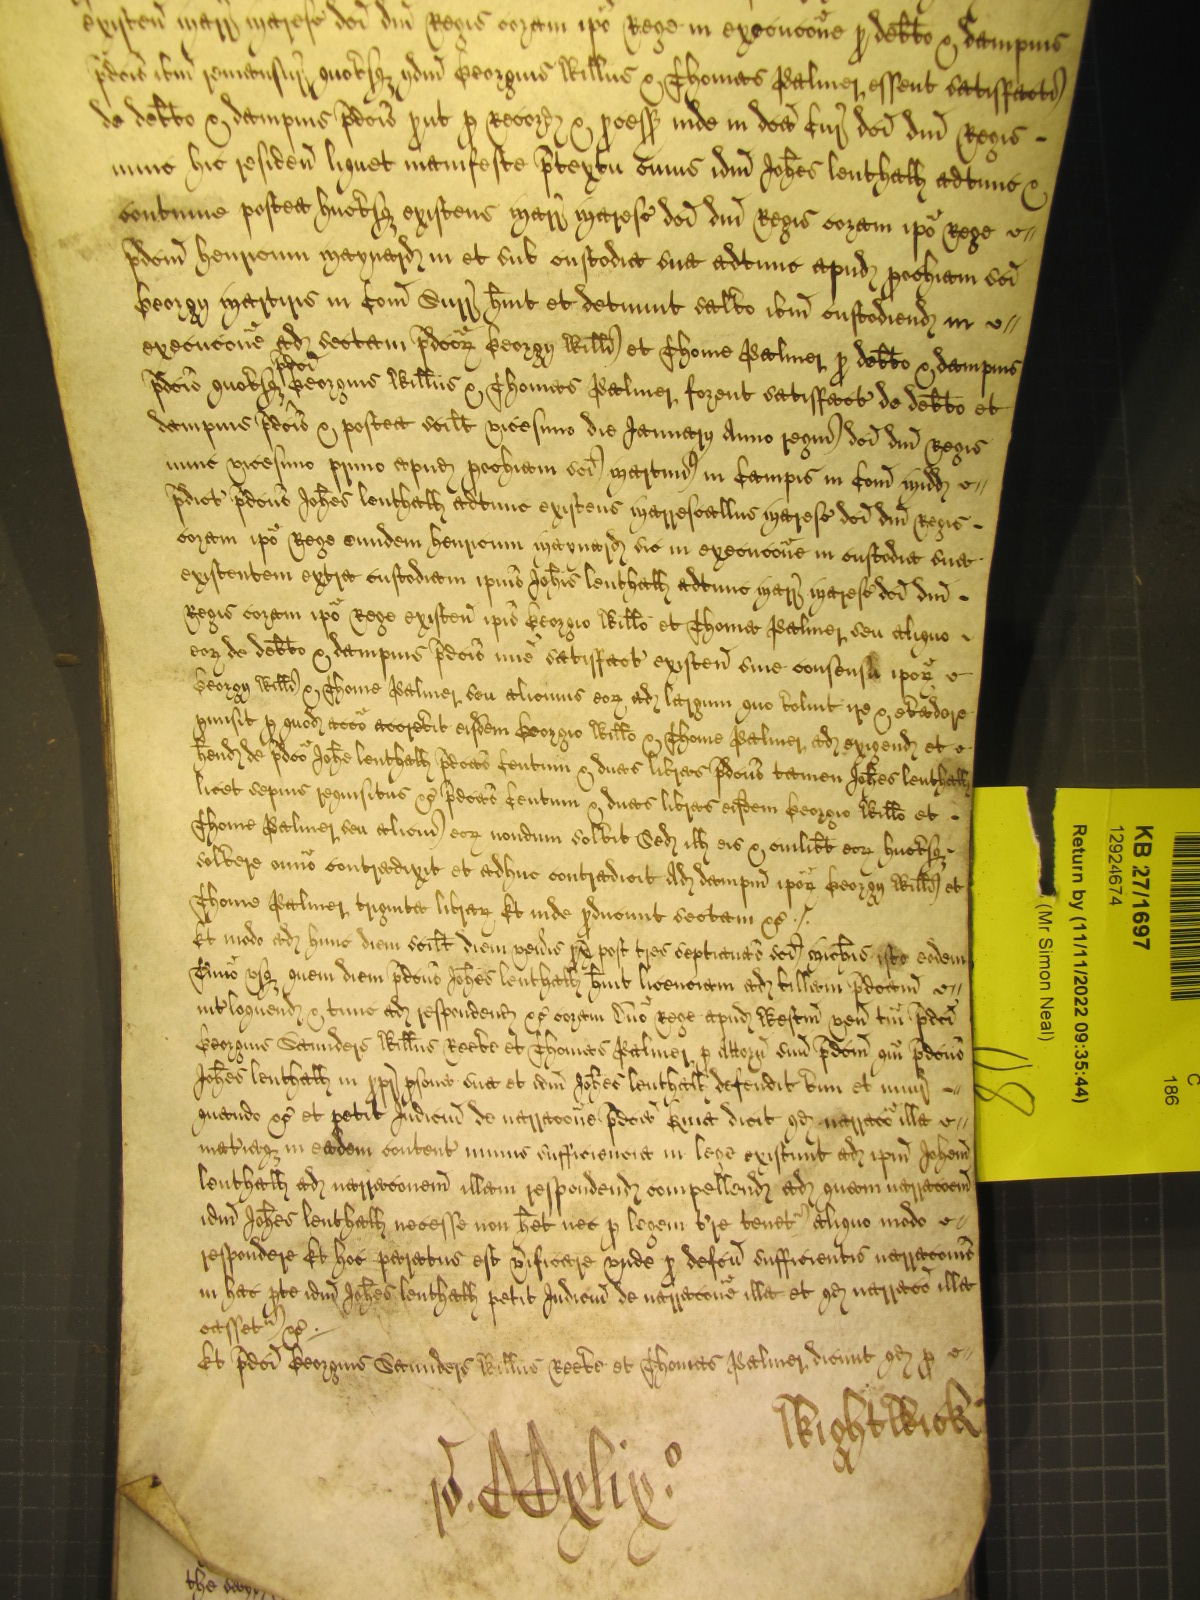 existen̄ marr̄ maresc̄ dc̄i dn̄i Regis coram ip̄o Rege in execuc̄oe p̱ deb̄to & dampnis
p̄dc̄is ib̄m remansur̄ quousq̨ ijdm̄ Georgius Will̄us & Thomas Palmer essent satisffact̄i
de deb̄to & dampnis p̄dc̄is put p̱ Record̄ & p̱cess̄ inde in dc̄a Cur̄ dc̄i dn̄i Regis -
nunc hic residen̄ liquet manifeste p̄textu cuius idm̄ Joh̄es Lenthall adtunc &
continue postea hucusq̨ existens marr̄ maresc̄ dc̄i dn̄i Regis coram ip̄o Rege
p̄dcm̄ Henricum Maynard in et sub custodia sua adtunc apud p̱ochiam sc̄i
Georgij Martiris in Com̄ Surr̄ h̄uit et detinuit salvo ib̄m custodiend̄ in
execuc̄oe ad sectam p̄dcor̄ Georgij Will̄i et Thome Palmer p̱ deb̄to & dampnis
p̄dc̄is quousq̨ p̄dc̄i Georgius Will̄us & Thomas Palmer forent satisffact̄ de deb̄to et
dampnis p̄dc̄is & postea scil̄t vicesimo die Januarij Anno regni dc̄i dn̄i Regis
nunc vicesimo primo apud p̱ochiam sc̄i Martini in Campis in Com̄ Midd̄
p̄dict̄ p̄dc̄us Joh̄es Lenthall adtunc existens marrescallus maresc̄ dc̄i dn̄i Regis -
coram ip̄o Rege eundem Henricum Maynard sic in execuc̄oe in custodia sua
existentem extra custodiam ipius Joh̄is Lenthall adtunc marr̄ maresc̄ dc̄i dn̄i -
Regis coram ip̄o Rege existen̄ ip̄is Georgio Will̄o et Thoma Palmer seu aliquo -
eor̄ de deb̄to & dampnis p̄dc̄is min̄e satisffact̄ existen̄ sine consensu ipor̄
Georgij Will̄i & Thome Palmer seu alicuius eor̄ ad largum quo voluit ire & evadere
p̱misit p̱ quod acc̄o accrevit eisdem Georgio Will̄o & Thome Palmer ad exigend̄ et
h̄end̄ de p̄dc̄o Joh̄e Lenthall p̄dc̄as Centum & duas libras p̄dc̄us tamen Joh̄es Lenthall
licet sepius requisitus &c̄ p̄dc̄as Centum & duas libras eisdem Georgio Will̄o et -
Thome Palmer seu alicui eor̄ nondum solvit Sed ill̄ eis & cuilib̄t eor̄ hucusq̨
solvere om̄o contradixit et adhuc contradicit Ad dampnū ipor̄ Georgij Will̄i et
Thome Palmer triginta librar̄ Et inde p̱ducunt sectam &c̄ ./.
Et modo ad hunc diem scil̄t diem ven̄is p̱x̄ post tres septianas sc̄i Mich̄is isto eodem
T̄mio usq̨ quem diem p̄dc̄us Joh̄es Lenthall h̄uit licenciam ad billam p̄dcam̄
int̄loquend̄ & tunc ad respondend̄ &c̄ coram D̄no Rege apud Westm̄ ven̄ tam p̄dc̄i
Georgius Saunders Will̄us Reeve et Thomas Palmer p̱ Attorn̄ suū p̄dcm̄ qm̄ p̄dc̄us
Joh̄es Lenthall in p̱pr̄ p̱sona sua et idm̄ Joh̄es Lenthall defendit vim et iniur̄ -
quando &c̄ et petit Judiciū de narrac̄oe p̄dc̄a Quia dicit qd̄ narrac̄o illa
mat̄iaq̨ in eadem content̄ minus sufficiencia in lege existunt ad ipm̄ Johem̄
Lenthall ad narracōem illam respondend̄ compellend̄ ad quam narracōem
idm̄ Joh̄es Lenthall necesse non h̄et nec p̱ legem t̄re tenet̄ aliquo modo
respondere Et hoc paratus est v̄ificare unde p̱ defc̄u sufficientis narracōnis
in hac p̱te idm̄ Joh̄es Lenthall petit Judiciū de narrac̄oe illa et qd̄ narrac̄o illa
casset̄ &c̄ ./.
Et p̄dc̄i Georgius Saunders Will̄us Reeve et Thomas Palmer dicunt qd̄ p̱
Wightwick
KB 27/1697
12924674
Return by (11/11/2022 09:35:44)
(Mr Simon Neal)
C
186